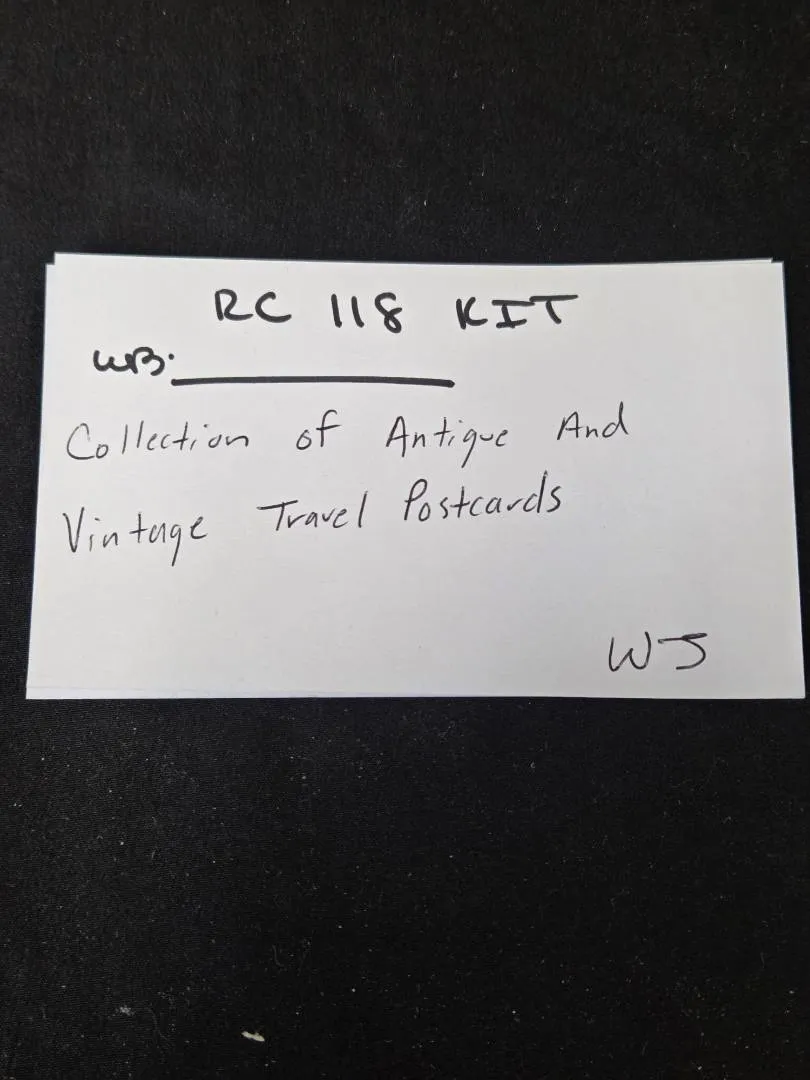 RC 118 KIT
WB.
Collection of Antique And
Vintage Travel Postcards
WJ